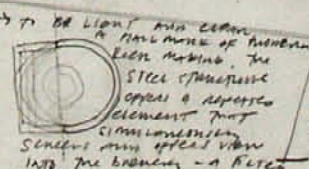 to BE LIGHT AND CLEAN
A HALLMARK OF MODERN
BEER MAKING. THE
STEEL STRUCTURE
OFFERS A REPEATED
ELEMENT THAT
SIMULTANEOUSLY
SCREENS AND OFFERS VIEW
INTO THE BREWERY - A FILTER